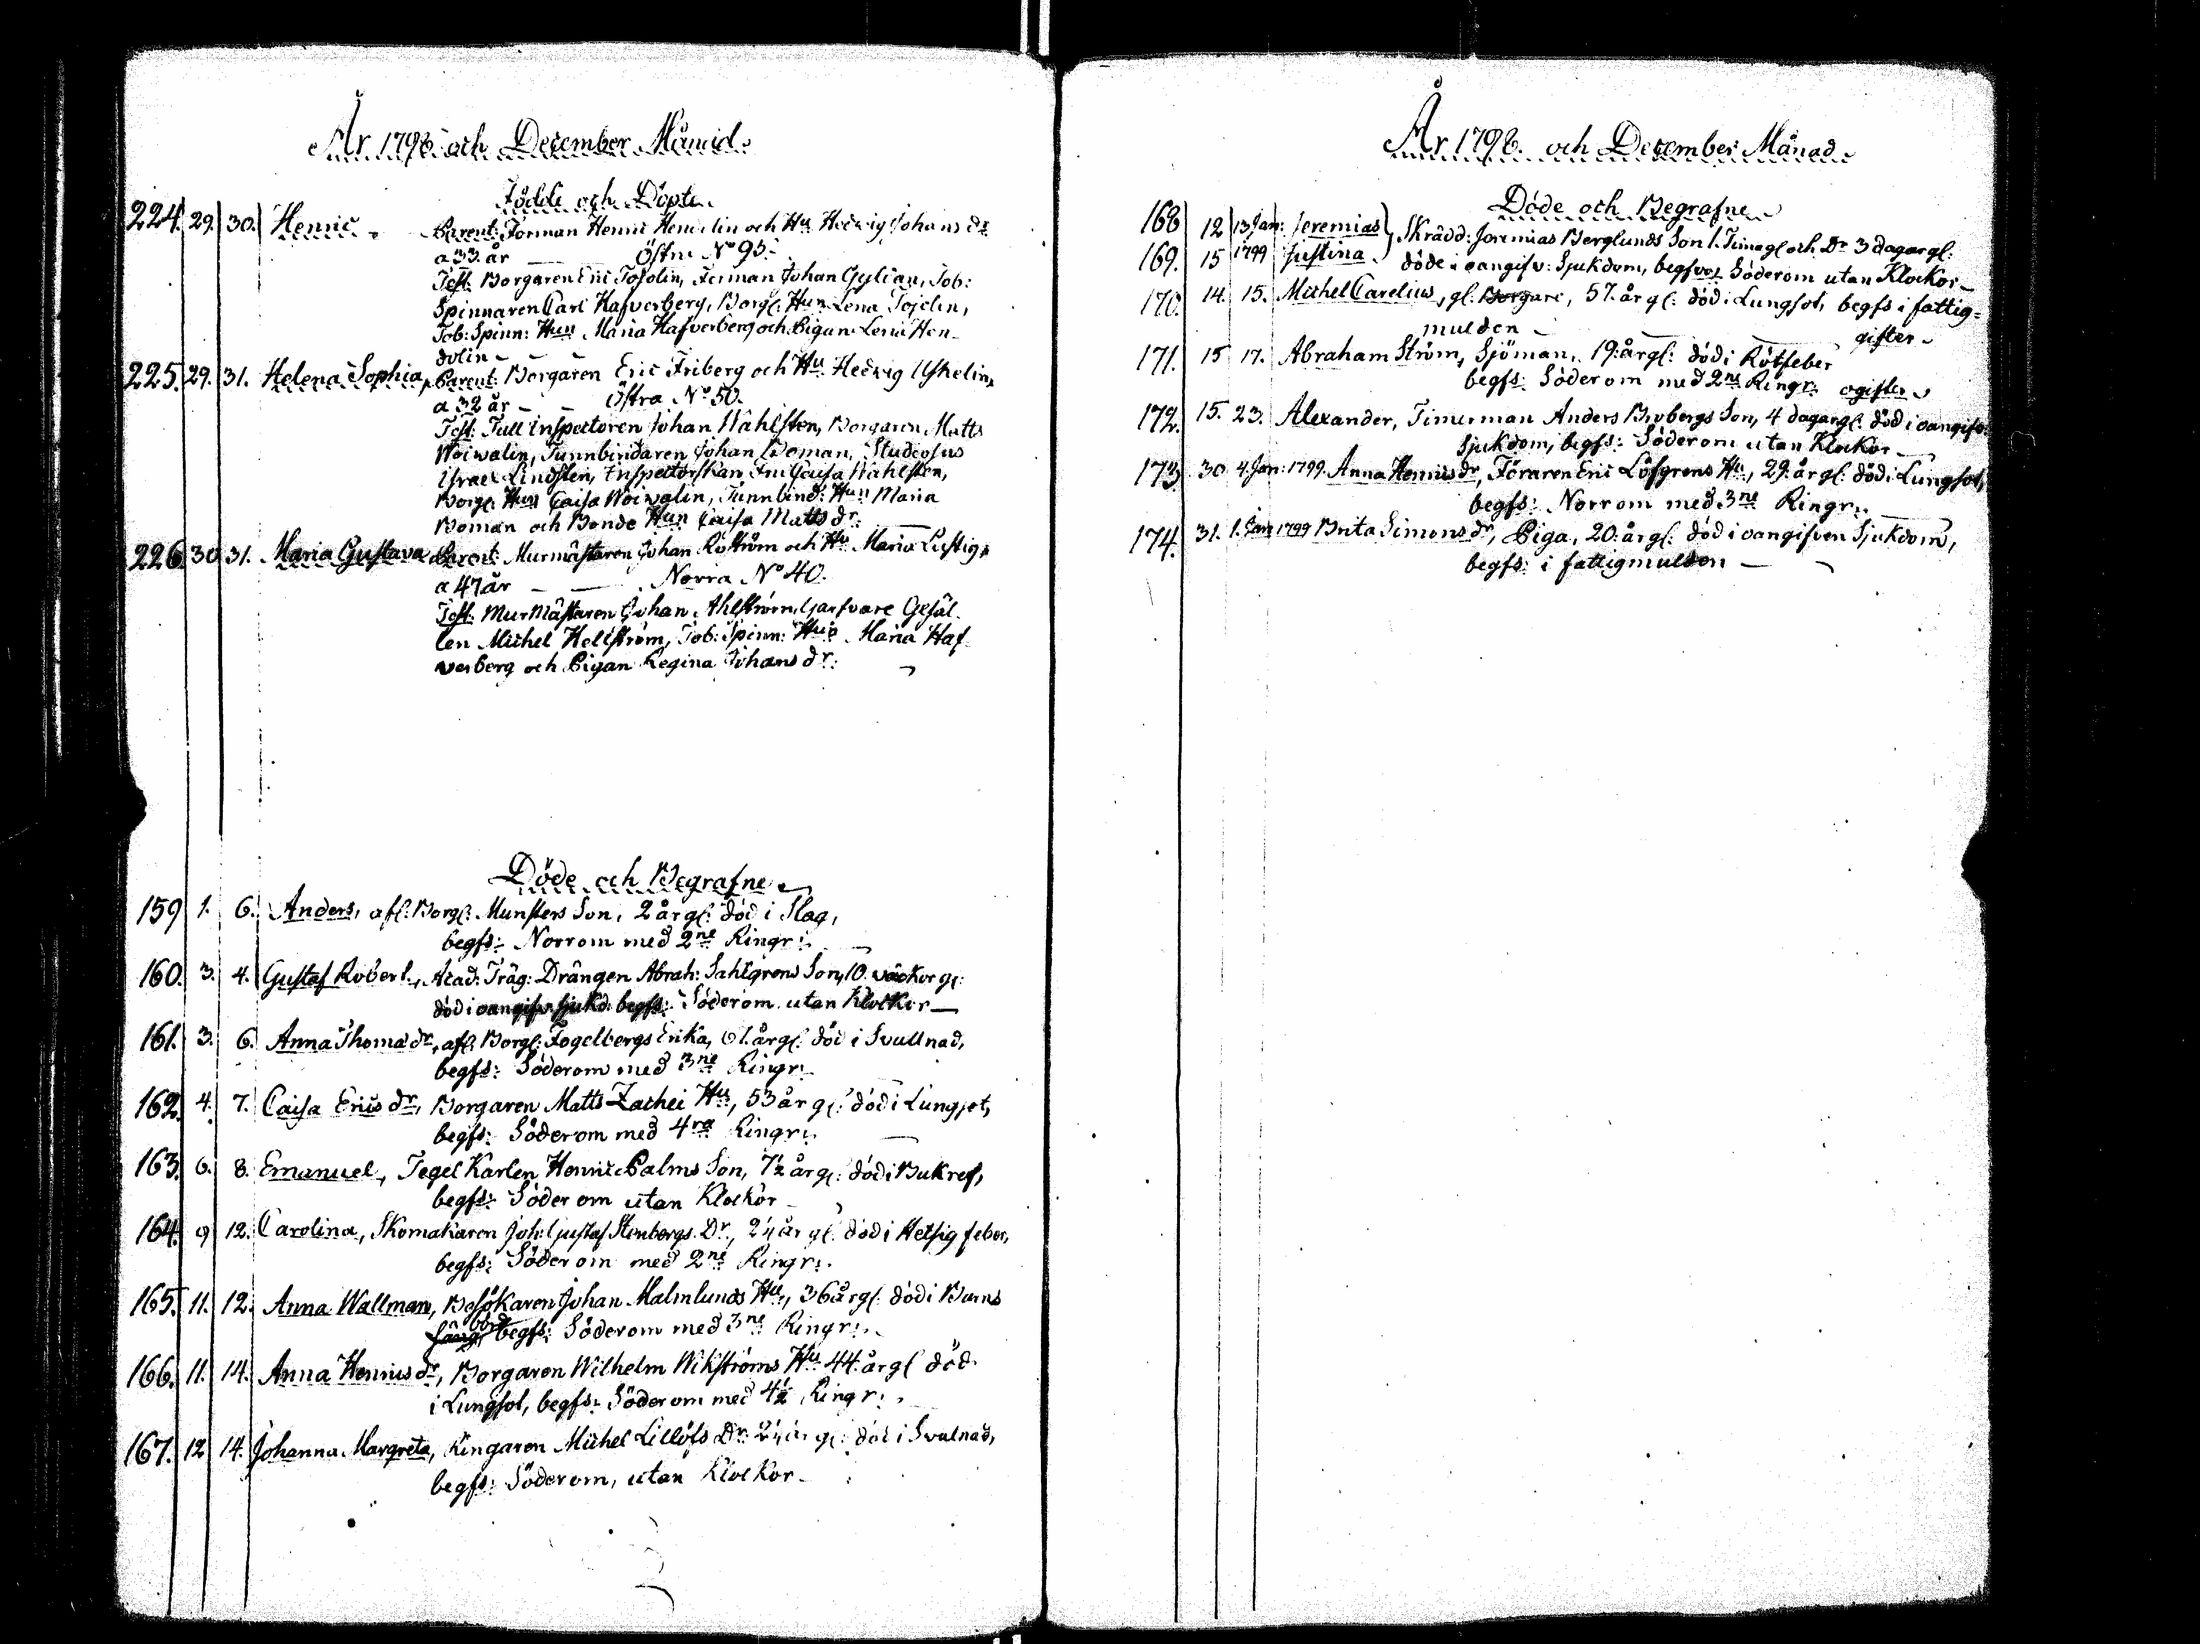 År 1798 och December Månad
Födde och Döpte
224. 29. 30. Henric Parent: Forman Henric Hendelin och Hu Hedvig Johans dr
a 33 år Östra No 95.
Test: Borgaren Eric Tojolin, Forman Johan Gylian, Tob:
Spinnaren Carl Hafverberg, Borgl: Hun Lena Tojelin,
Tob: Spinn: Hun Maria Hafverberg och Pigan Lena Hen-
dolin
225. 29. 31. Helena Sophia, Parent: Borgaren Eric Friberg och Hu Hedvig Uskelin
a 32 år Östra No 50.
Test: Tull Inspectoren Johan Wahlsten, Borgaren Matts
Woivalin, Tunnbindaren Johan Boman, Studiosus
Israel Lindsten, Inspectorskan Fru Caisa Wahlsten,
Borgl: Hun Caisa Woivalin, Tunnbind: Hun Maria
Boman och Bonde Hun Caisa Matts dr:
226. 30 31. Maria Gustava Parent: Murmästaren Johan Röström och Hu Maria Lustig
a 47 år Norra No 40.
Test: MurMästaren Johan Ahlström, Garfvare Gesäl
len Michel Hellström, Tob: Spinn: Hun Maria Haf
verberg och Pigan Regina Johans dr:
Döde och Begrafne
159 1. 6. Anders, afl: Borgl: Munsters Son, 2 år gl: död i Slag,
begfs: Norrom med 2ne Ringr:
160. 3. 4. Gustaf Robert, Acad: Träg: Drängen Abrah: Sahlgrens Son, 10 veckor gl:
död i oangifv: sjukd: begfs: Söderom utan Klockor
161. 3. 6. Anna Thomæ dr, afl: Borgl: Fogelbergs Enka, 61 år gl: död i Svullnad,
begfs: Söderom med 3ne Ringr:
162. 4. 7. Caisa Erics dr, Borgaren Matts Zachei Hu, 53 år gl: död i Lungsot,
begfs: Söderom med 4ra Ringr:
163. 6. 8. Emanuel, Tegel Karlen Henric Palms Son, 7½ år gl: död i Bukref,
begfs: Söder om utan Klockor
164. 9 12. Carolina, Skomakaren Joh: Gustaf Stenbergs Dr, 2¼ år gl: död i Hetsig feber,
begfs: Söder om med 2ne Ringr:
165. 11. 12. Anna Wallman, Besökaren Johan Malmlunds Hu, 36 år gl: död i Barns
börd begfs: Söderom med 3ne Ringr:
166. 11. 14. Anna Henrics dr, Borgaren Wilhelm Wikströms Hu 44 år gl: död
i Lungsot, begfs: Söder om med 4½ Ringr:
167. 12 14. Johanna Margreta, Ringaren Michel Lillöfs Dr 2¼ år gl: död i Svulnad,
begfs: Söderom, utan Klockor
År 1798. och December Månad
Döde och Begrafne
168 12 13 Jan: Jeremias } Skrädd: Jeremias Berglunds Son 1. Tima gl: och Dr 3 dagar gl:
169. 15 1799 Justina döde i oangifv: Sjukdom, begfves Söderom utan Klockor
170. 14. 15. Michel Carelius, gl: Borgare, 57. år gl: död i Lungsot, begfs i fattig=
mulden gifter
171. 15 17. Abraham Ström, Sjöman, 19. år gl: död i Rötfeber
begfs: Söder om med 2ne Ringr: ogifter
172. 15. 23. Alexander, Timerman Anders Brobergs Son, 4 dagar gl: död i oangifv:
Sjukdom, begfs: Söder om utan Klockor
173. 30. 4. Jan: 1799. Anna Henricsdr, Föraren Eric Löfgrens Hu, 29. år gl: död i Lungsot,
begfs: Norrom med 3ne Ringr:
174. 31. 1. Jan 1799 Brita Simons dr, Piga, 20. år gl: död i oangifven Sjukdom,
begfs: i fattigmulden